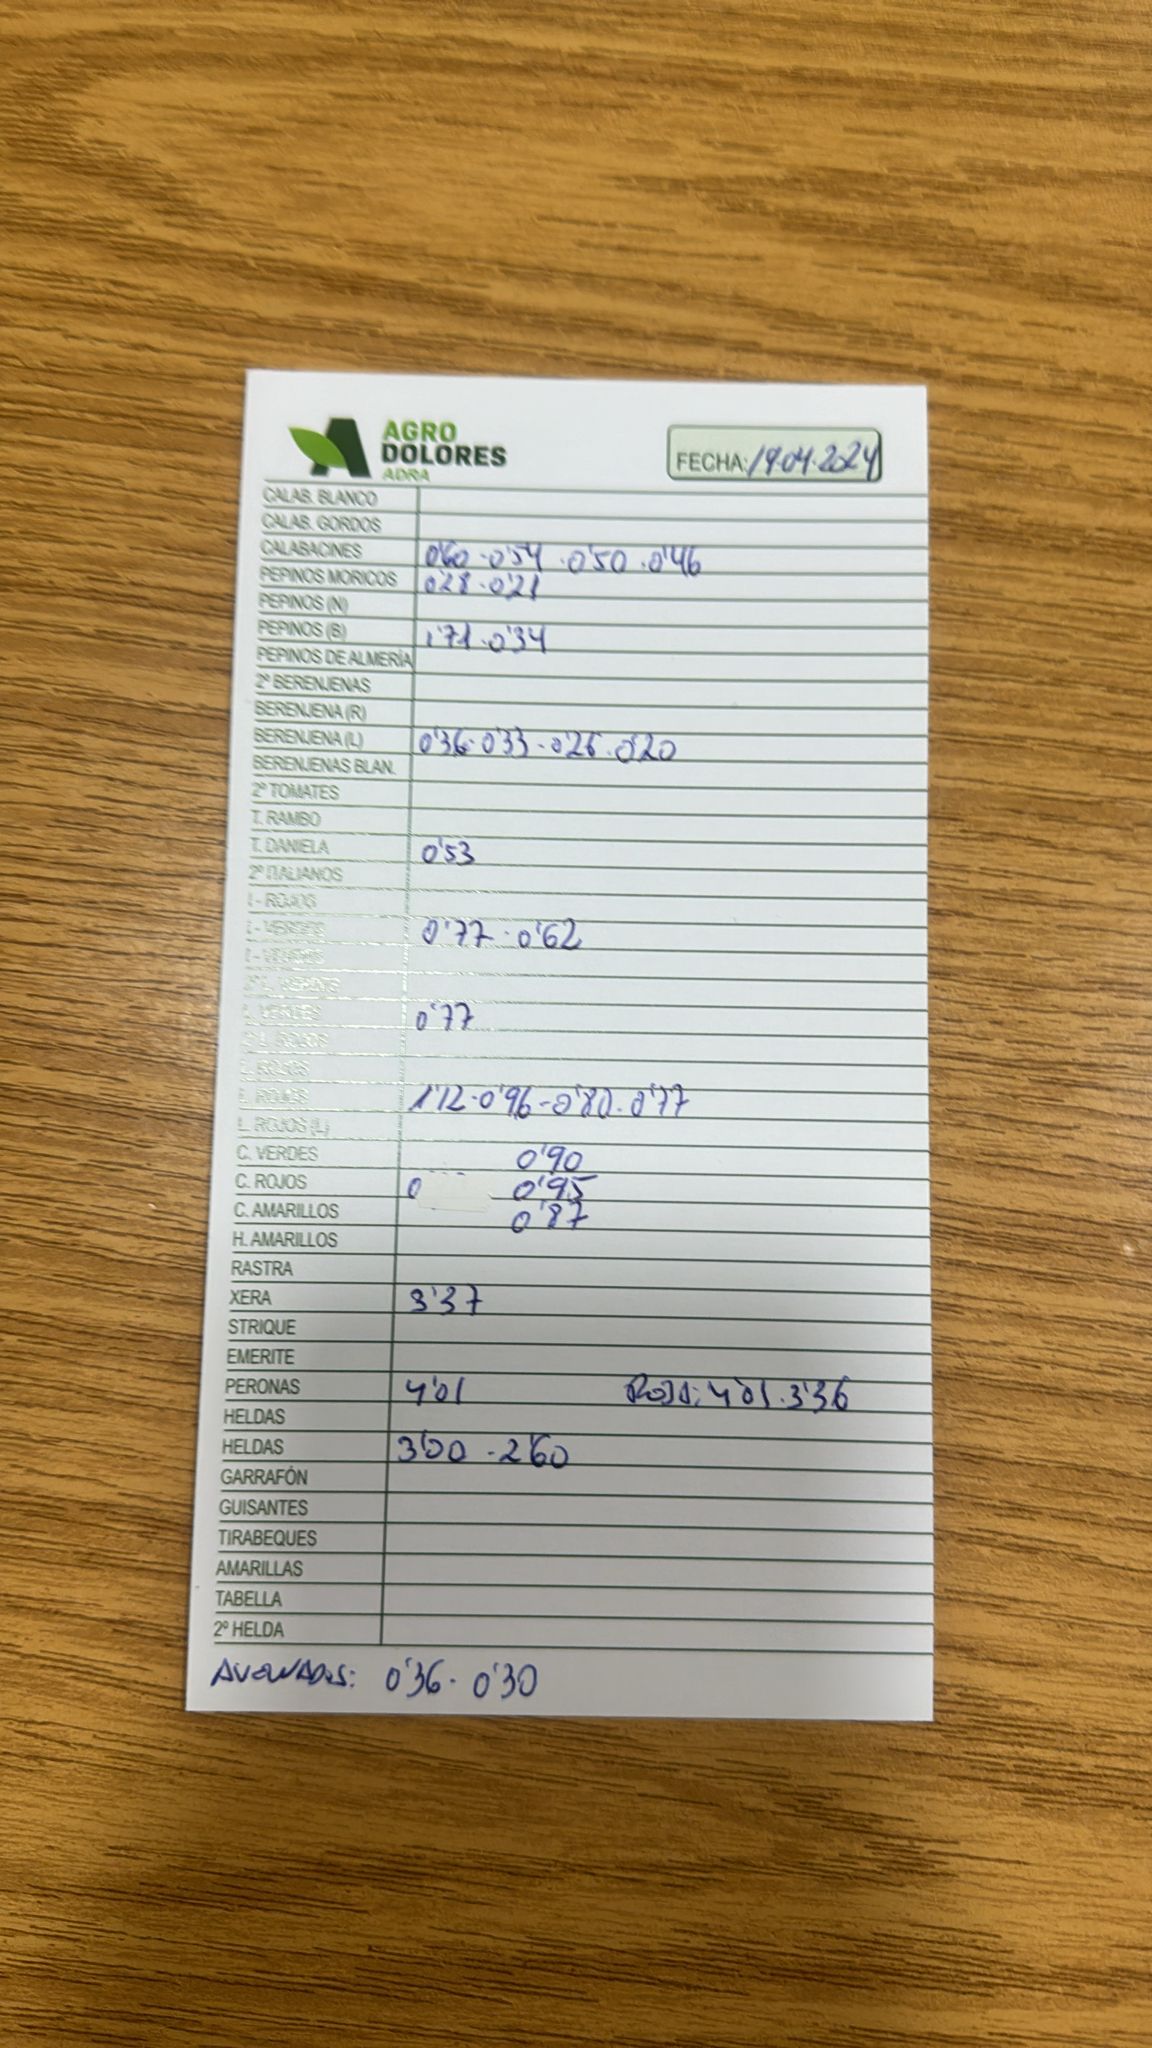 AGRO
DOLORES
ADRA
FECHA: 19.04.2024
CALAB. BLANCO
CALAB. GORDOS
CALABACINES 0'60 - 0'54 . 0'50 . 0'46
PEPINOS MORICOS 0'28 - 0'21
PEPINOS (N)
PEPINOS (B) 1'71 . 0'34
PEPINOS DE ALMERÍA
2º BERENJENAS
BERENJENA (R)
BERENJENA (L) 0'36 - 0'33 - 0'26 . 0'20
BERENJENAS BLAN.
2º TOMATES
T. RAMBO
T. DANIELA 0'53
2º ITALIANOS
I - ROJOS
I - VERDES 0'77 . 0'62
I - VERDES
2º L. VERDES
L. VERDES 0'77
2º L. ROJOS
L. ROJOS
L. ROJOS 1'12 - 0'96 - 0'80 . 0'77
L. ROJOS (L)
C. VERDES 0'90
C. ROJOS 0 0'95
C. AMARILLOS 0'87
H. AMARILLOS
RASTRA
XERA 3'37
STRIQUE
EMERITE
PERONAS 4'01 ROJA: 4'01 . 3'36
HELDAS
HELDAS 3'00 - 2'60
GARRAFÓN
GUISANTES
TIRABEQUES
AMARILLAS
TABELLA
2º HELDA
0'36 . 0'30